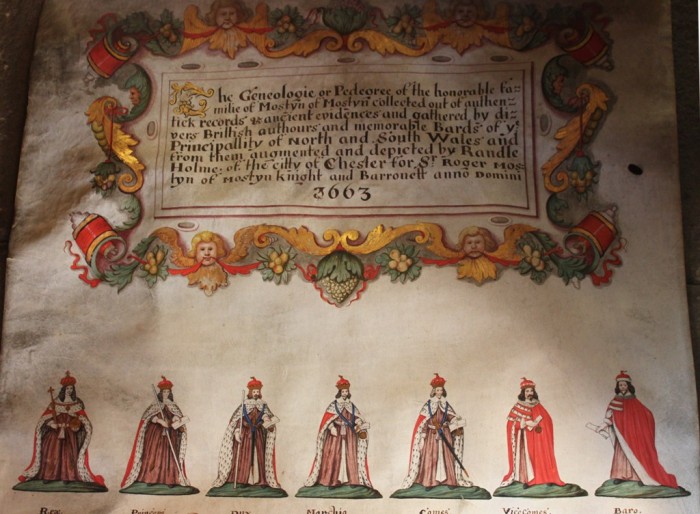 The Geneologie or Pedegree of the honorable fa=
milie of Mostyn of Mostyn collected out of authen=
tick records & ancient evidences and gathered by di=
vers Brittish authours and memorable Bards of yᵉ
Principallity of North and South Wales and
from them augmented and depicted by Randle
Holme: of the citty of Chester for Sʳ Roger Mos=
tyn of Mostyn knight and Barronett anno Domini
1663
Rex.
Princeps
Dux
Marchio
Comes.
Vicecomes.
Baro.